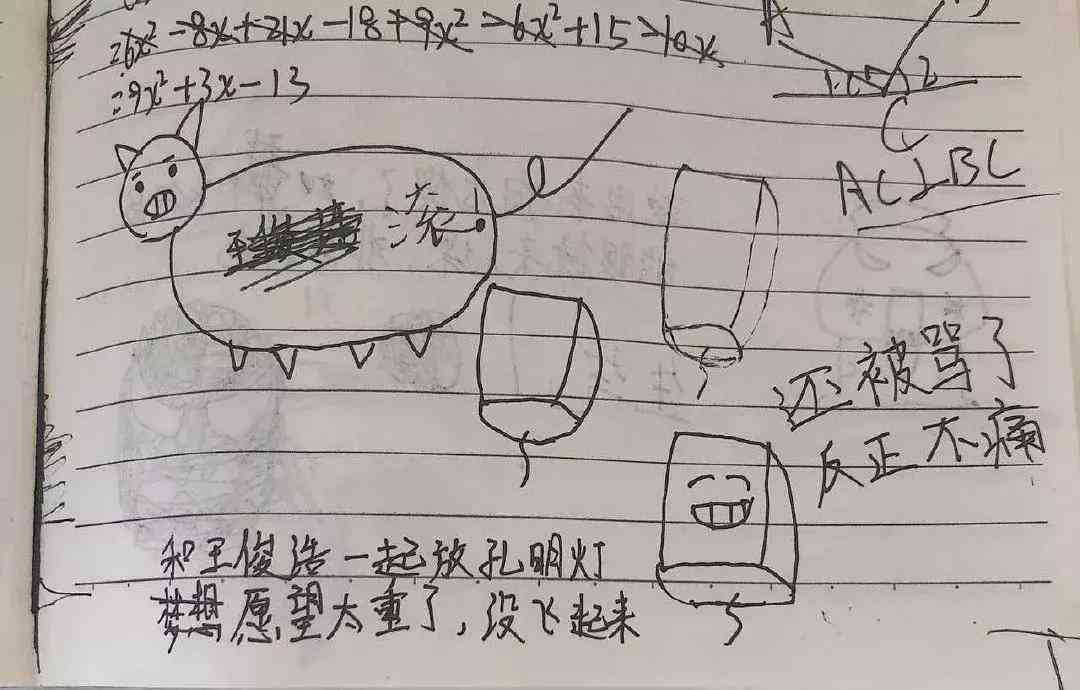 =6x²-8x+21x-18+9x²-6x²+15-10x
=9x²+3x-13
A
1 2
C
AC⊥BC
滚
还被骂了
反正不痛
和王俊浩一起放孔明灯
梦想愿望太重了,没飞起来